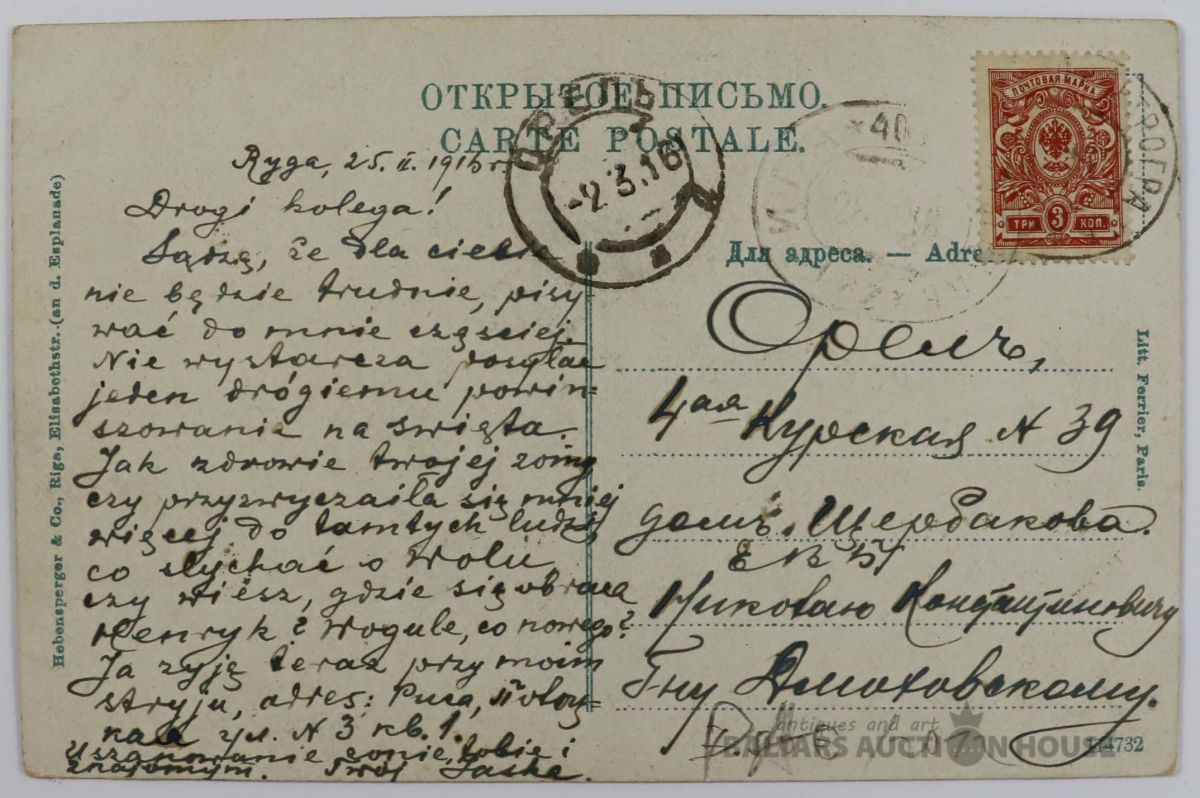 ОТКРЫТОЕ ПИСЬМО.
CARTE POSTALE.
Для адреса. — Adre
ПОЧТОВАЯ МАРКА
ТРИ 3 КОП.
ОРЕЛЪ
-2.3.16
Ryga, 25. II. 1916 r
Drogi kolega!
Sądzę, że dla ciebie
nie będzie trudnie, pisy-
wać do mnie częściej.
Nie wystarcza posyłać
jeden drógiemu powin-
szowanie na święta.
Jak zdrowie twojej żony
czy przyzwyczaiła się mniej
więcej do tamtych ludzi,
co słychać o Wolu,
czy wiesz, gdzie się obraca
Henryk i wogule, co nowego?
Ja żyję teraz przy moim
stryju, adres: Рига,
ул. N 3 кв. 1.
Uszanowanie żonie, tobie i
znajomym. Twój
Орелъ,
4ая Курская N 39
домъ Щербакова.
Е В Б
Николаю Константиновичу
Гну Дмоховскому.
Hebensperger & Co., Riga, Elisabethstr. (an d. Esplanade)
Litt. Ferrier, Paris.
antiques and art
BALTARS AUCTION HOUSE
4732